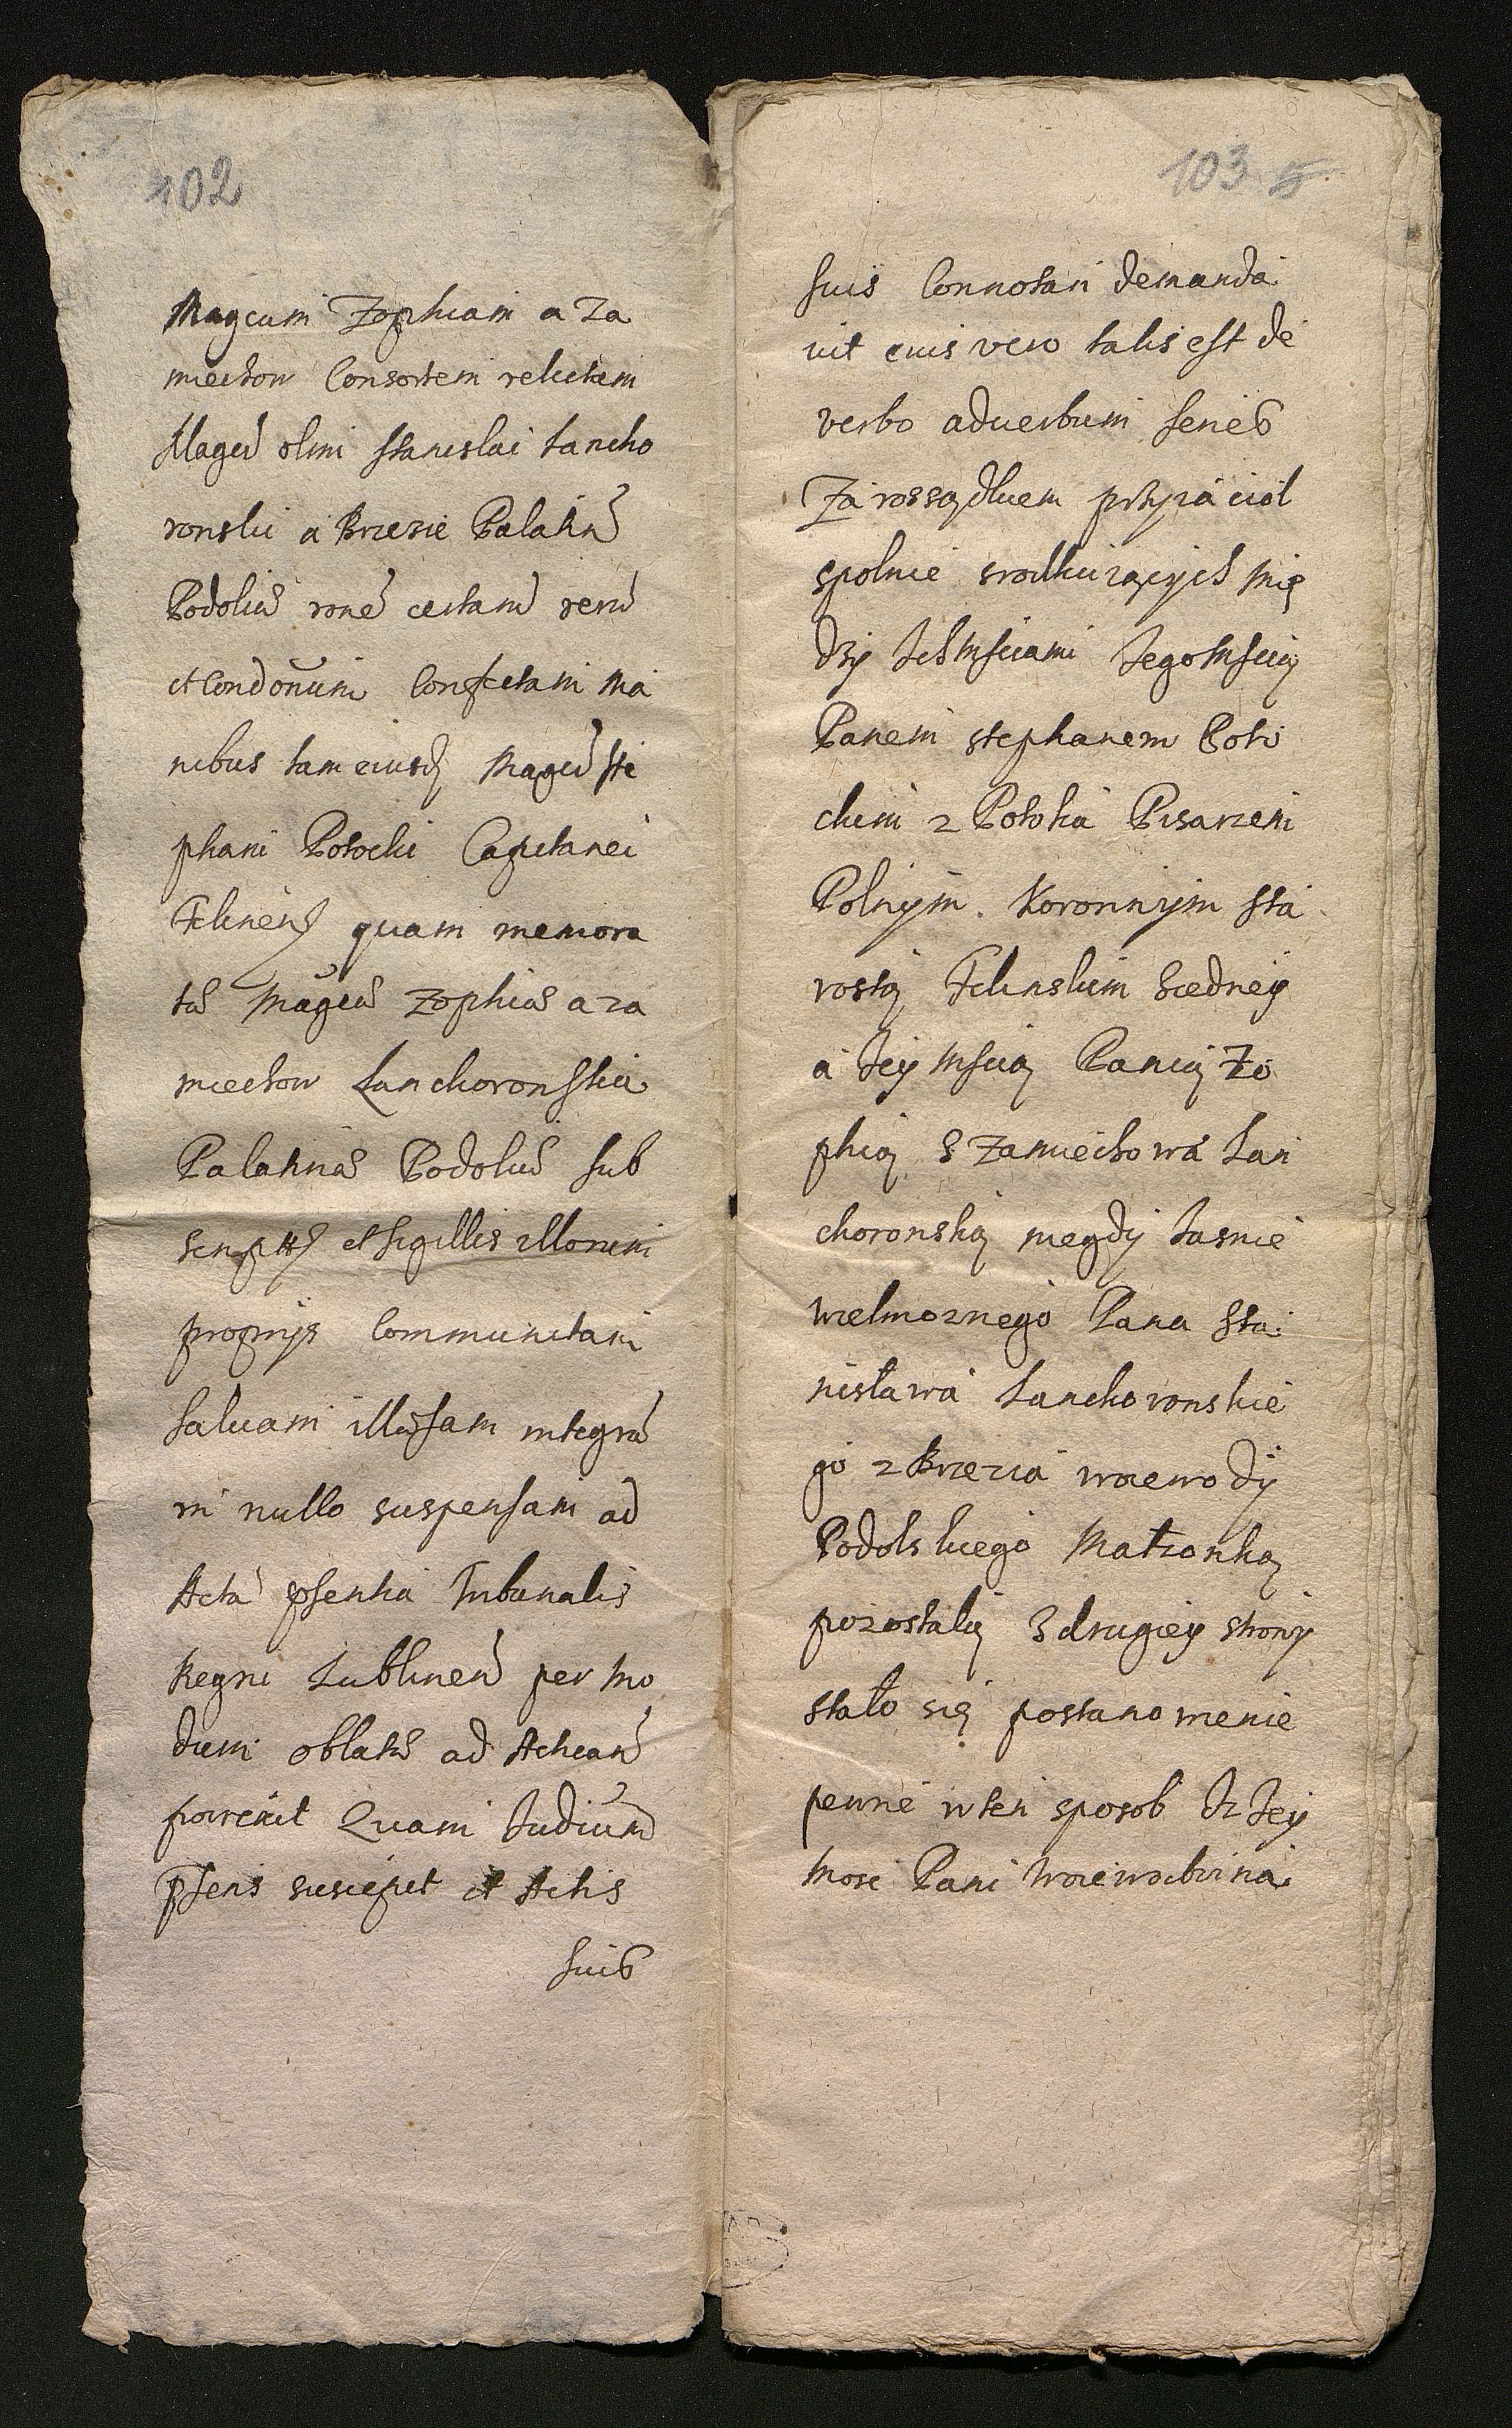 102
Magcam Zophiam a Za
miechow Consortem relictam
Magci olim Stanislai Lancko
ronski a Brzezie Palatin
Podoliae rone certarum rerum
et Condonum Confectam Ma
nibus tam eiusdem Magci Ste
phani Potocki Capitanei
Felinens quam memora
tae Magcae Zophiae a Za
miechow Lanckoronskia
Palatinae Podoliae sub
scriptis et sigillis illorum
proprijs Communitam
saluam illaesam integra
in nullo suspensam ad
Acta psentia Tribunalis
Regni Lublinen per Mo
dum oblatae ad Acticand
porrexit Quam Judicium
psens suscepit et Actis
suis
103 5
suis Connotari demanda
uit cuis vero talis est de
verbo aduerbum series
Za rossądkiem przyiaciol
spolnie srodkuiących Mię
dzy Ich Msciami Jego Mscią
Panem Stephanem Poto
ckim z Potoka Pisarzem
Polnym. Koronnym Sta
rostą Felinskim Siedney
a Jey Mscią Panią Zo
phią s Zamiechowa Lan
choronską niegdy Jasnie
wielmoznego Pana Sta
nisława Lanckoronskie
go z Brzezia woiewody
Podolskiego Małzonką
pozostałą z drugiey strony
stało się postanowienie
pewne w ten sposob Iz Jey
Mosc Pani Woiewodzina